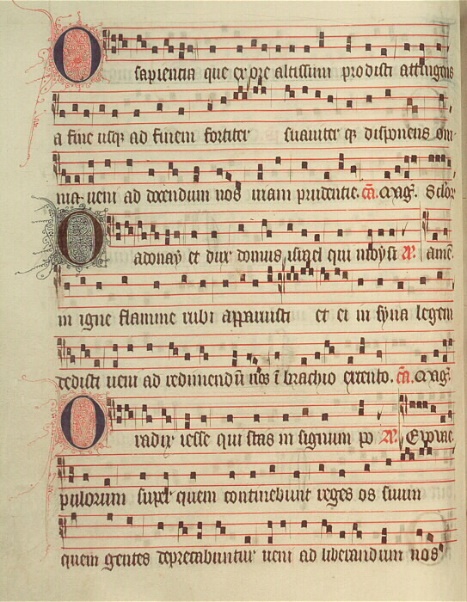 O sapiencia que ex ore altissimi prodisti attingens
a fine usq; ad finem fortiter suauiter q; disponens om
nia ueni ad docendum nos uiam prudentie. Mag.
O adonay et dux domus israel qui moysi
in igne flamme rubi apparuisti et ei in syna legem
dedisti ueni ad redimendū nos ī brachio extento. Mag.
O radix iesse qui stas in signum po
pulorum super quem continebunt reges os suum
quem gentes deprecabuntur ueni ad liberandum nos